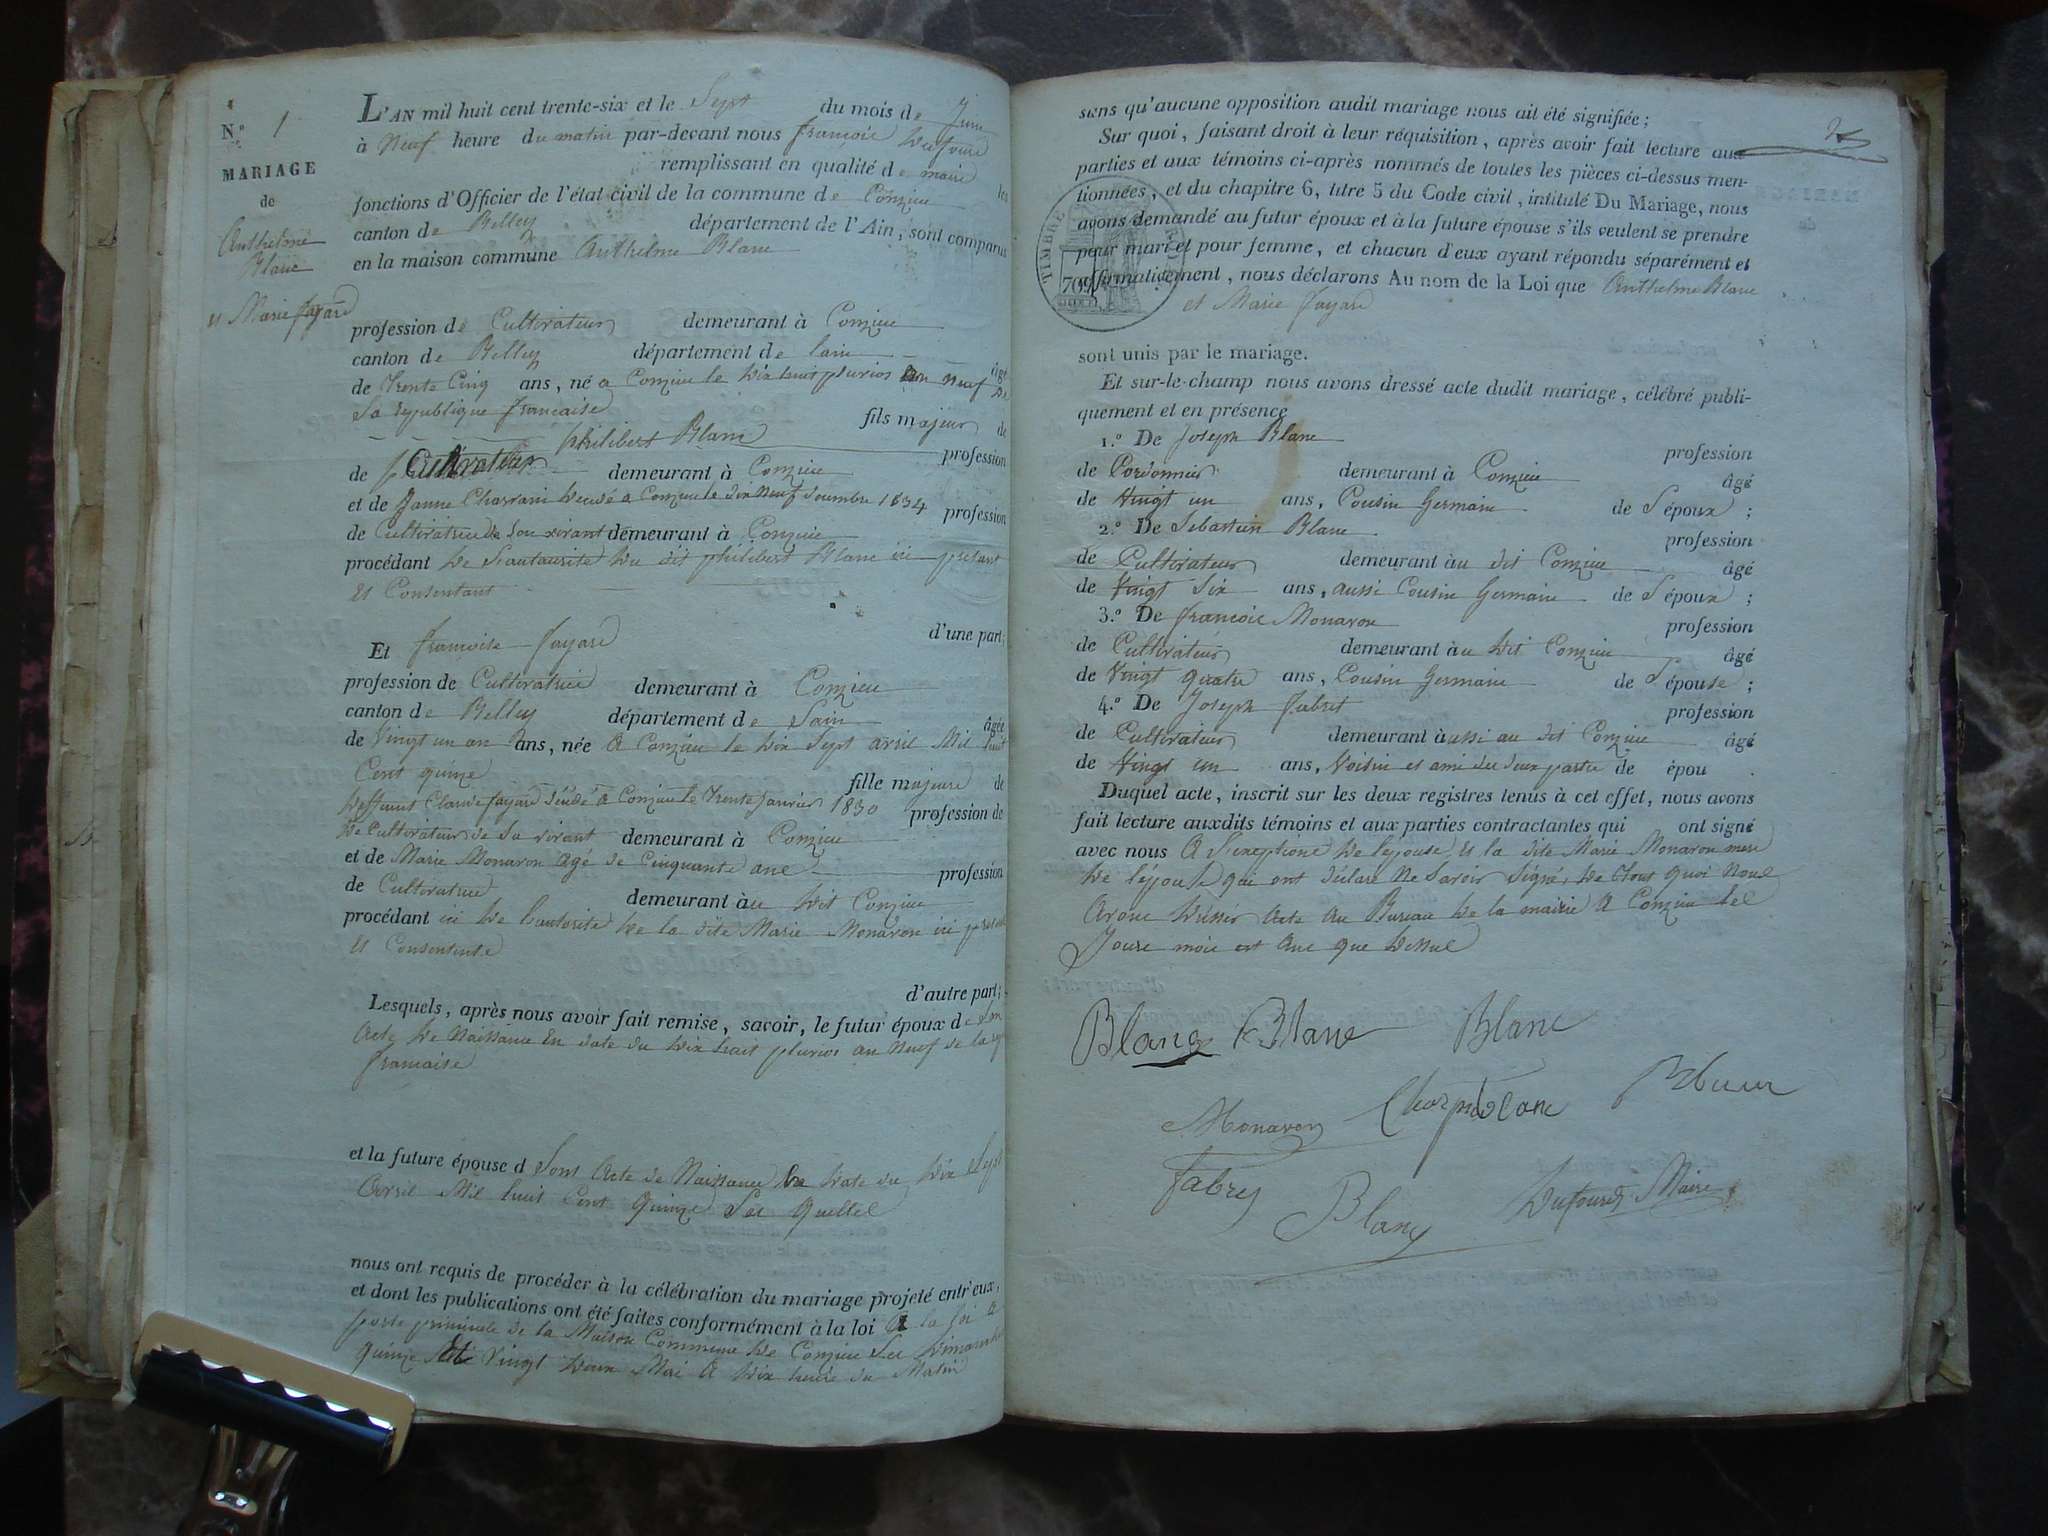 N.º 1
MARIAGE
de
Anthelme
Blanc
et Marie fayard
L'AN mil huit cent trente-six et le Sept du mois de Juin
à Neuf heure du matin par-devant nous francois Dufour
remplissant en qualité de maire les
fonctions d'Officier de l'état civil de la commune de Conzieu
canton de Belley département de l'Ain, sont comparus
en la maison commune Anthelme Blanc
profession de Cultivateur demeurant à Conzieu
canton de Belley département de lain
âgé
de trente Cinq ans, né a Conzieu le dix huit pluvios an neuf de
la republique francaise fils majeur de
philibert Blanc profession
de Cultivateur demeurant à Conzieu
et de Janne Charvani décédé a Conzieu le dix Neuf 1834 profession
de Cultivatrice de Son vivant demeurant à Conzieu
procédant de Lautaurité du dit philibert Blanc ici présant
Et Consentant
d'une part;
Et francoise fayard
profession de Cultivatrice demeurant à Conzieu
canton de Belley département de Lain âgée
de Vingt un an ans, née A Conzieu le dix Sept avril Mil huit
Cent quinze fille majeure de
deffunt Claude fayard décédé a Conzieu le trente janvier 1830 profession de
de Cultivateur de Sa vivant demeurant à Conzieu
et de Marie Monavon agé de Cinquante ans profession
de Cultivatrice demeurant àu dit Conzieu
procédant ici de Lautorité de la dite Marie Monavon ici présente
Et Consentente
d'autre part;
Lesquels, après nous avoir fait remise, savoir, le futur époux de Son
Acte de Naissance En date du dix huit pluvios an Neuf de la
francaise
et la future épouse d Sont Acte de Naissance date du dix Sept
Avril Mil huit Cent Quinze
nous ont requis de procéder à la célébration du mariage projeté entr'eux,
et dont les publications ont été faites conformément à la loi la
porte de la Maison Commune de Conzieu Les dimanche
quinze Vingt deux Mai A dix heure du Matin
sans qu'aucune opposition audit mariage nous ait été signifiée;
Sur quoi, faisant droit à leur réquisition, après avoir fait lecture aux
parties et aux témoins ci-après nommés de toutes les pièces ci-dessus men-
tionnées, et du chapitre 6, titre 5 du Code civil, intitulé Du Mariage, nous
avons demandé au futur époux et à la future épouse s'ils veulent se prendre
pour mari et pour femme, et chacun d'eux ayant répondu séparément et
affirmativement, nous déclarons Au nom de la Loi que Anthelme Blanc
et Marie fayard
TIMBRE
70
sont unis par le mariage.
Et sur-le-champ nous avons dressé acte dudit mariage, célébré publi-
quement et en présence
1.º De Joseph Blanc profession
de Cordonnier demeurant à Conzieu âgé
de Vingt un ans, Cousin Germain de Lépoux ;
2.º De Sebastien Blanc profession
de Cultivateur demeurant àu dit Conzieu âgé
de Vingt Six ans, aussi Cousin Germain de Lépoux ;
3.º De francois Monavon profession
de Cultivateur demeurant àu dit Conzieu âgé
de Vingt quatre ans, Cousin Germain de L épouse ;
4.º De Joseph fabret profession
de Cultivateur demeurant àussi au dit Conzieu âgé
de Vingt un ans, Voisin et ami des deux partie de épou
Duquel acte, inscrit sur les deux registres tenus à cet effet, nous avons
fait lecture auxdits témoins et aux parties contractantes qui ont signé
avec nous A Lexeptione de lépouse, Et la dite Marie Monavon mere
de lépouse qui ont déclare Ne Savoir Signé, de tous quoi Nous
Avons dressér Acte Au Bureau de la mairie A Conzieu les
Jours mois et ans que dessus
Blanc Blanc Blanc
Monavon
Fabrey
Blanc Dufour Maire